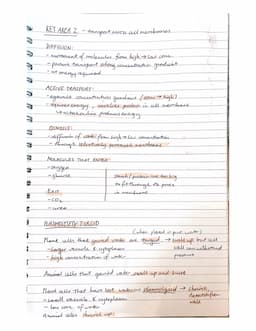 KEY AREA 2 - transport across cell membranes
DIFFUSION:
- movement of molecules from high → low conc.
- passive transport along concentration gradient
- no energy required
ACTIVE TRANSPORT:
- against concentration gradient (low → high)
- requires energy, involves protein in cell membrane
↳ mitochondria produces energy
OSMOSIS:
- diffusion of water from high → low concentration
- through selectively permeable membrane
MOLECULES THAT ENTER:
- oxygen
- glucose
starch/protein are too big
to fit through the pores
in membrane
EXIT
- CO₂
- urea
PLASMOLYSIS/TURGID
(when placed in pure water)
Plant cells that gained water are turgid. → swells up but cell
- larger vacuole & cytoplasm
wall can withstand
pressure
- high concentration of water
Animal cells that gained water swell up and burst
Plant cells that have lost water = plasmolysed →
- small vacuole & cytoplasm
- low conc. of water
Animal cells shrivel up